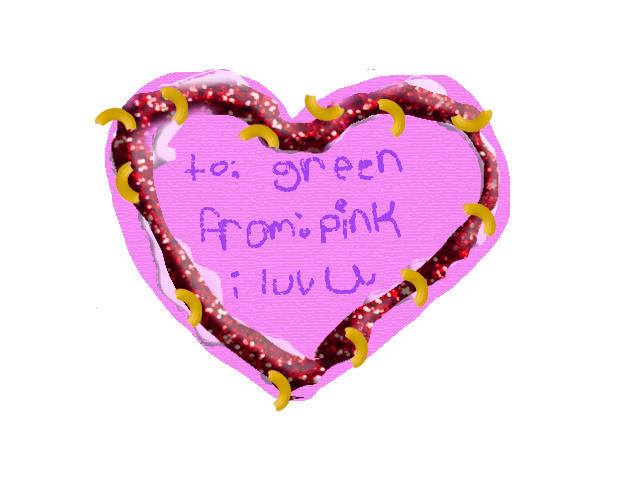 to: green
from: pink
i luv U